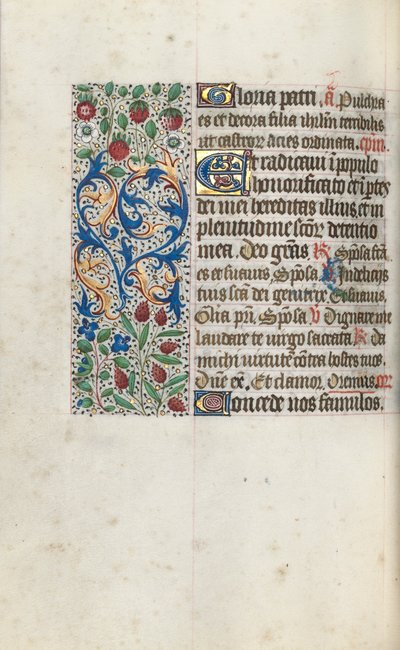 Gloria patri. a Pulchra
es et decora filia ihrlm terribilis
ut castrorum acies ordinata. cpitm
Et radicaui ī populo
honorificato et ī ptes
dei mei hereditas illius et in
plenitudine sctor detentio
mea. Deo gras R Speciosa fca
es et suauis. Speciosa V In delicijs
tuis sca dei genitrix. Et suauis.
Glia pri. Speciosa V Dignare me
laudare te virgo sacrata. R Da
michi virtute contra hostes tuos.
Dne ex. Et clamor. Oremus. or
Concede nos famulos.